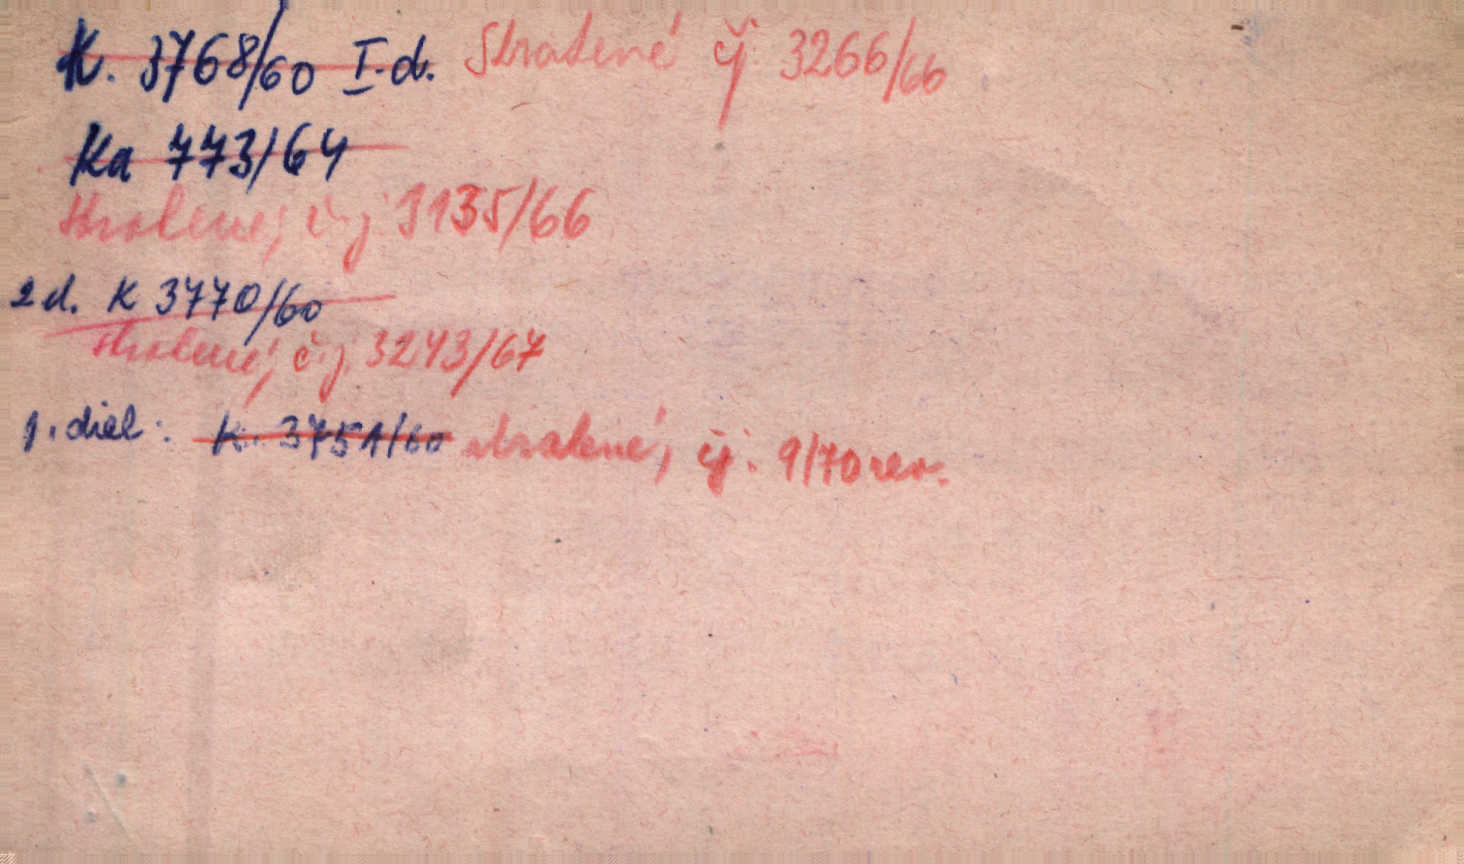 K. 3768/60 I. d. Stratené čj 3266/66
Ka 773/64
Stratené, č. j. 3135/66
2 d. K 3770/60
stratené, č. j. 3243/67
1. diel: K. 3751/60 stratené, čj. 9/70 rev.